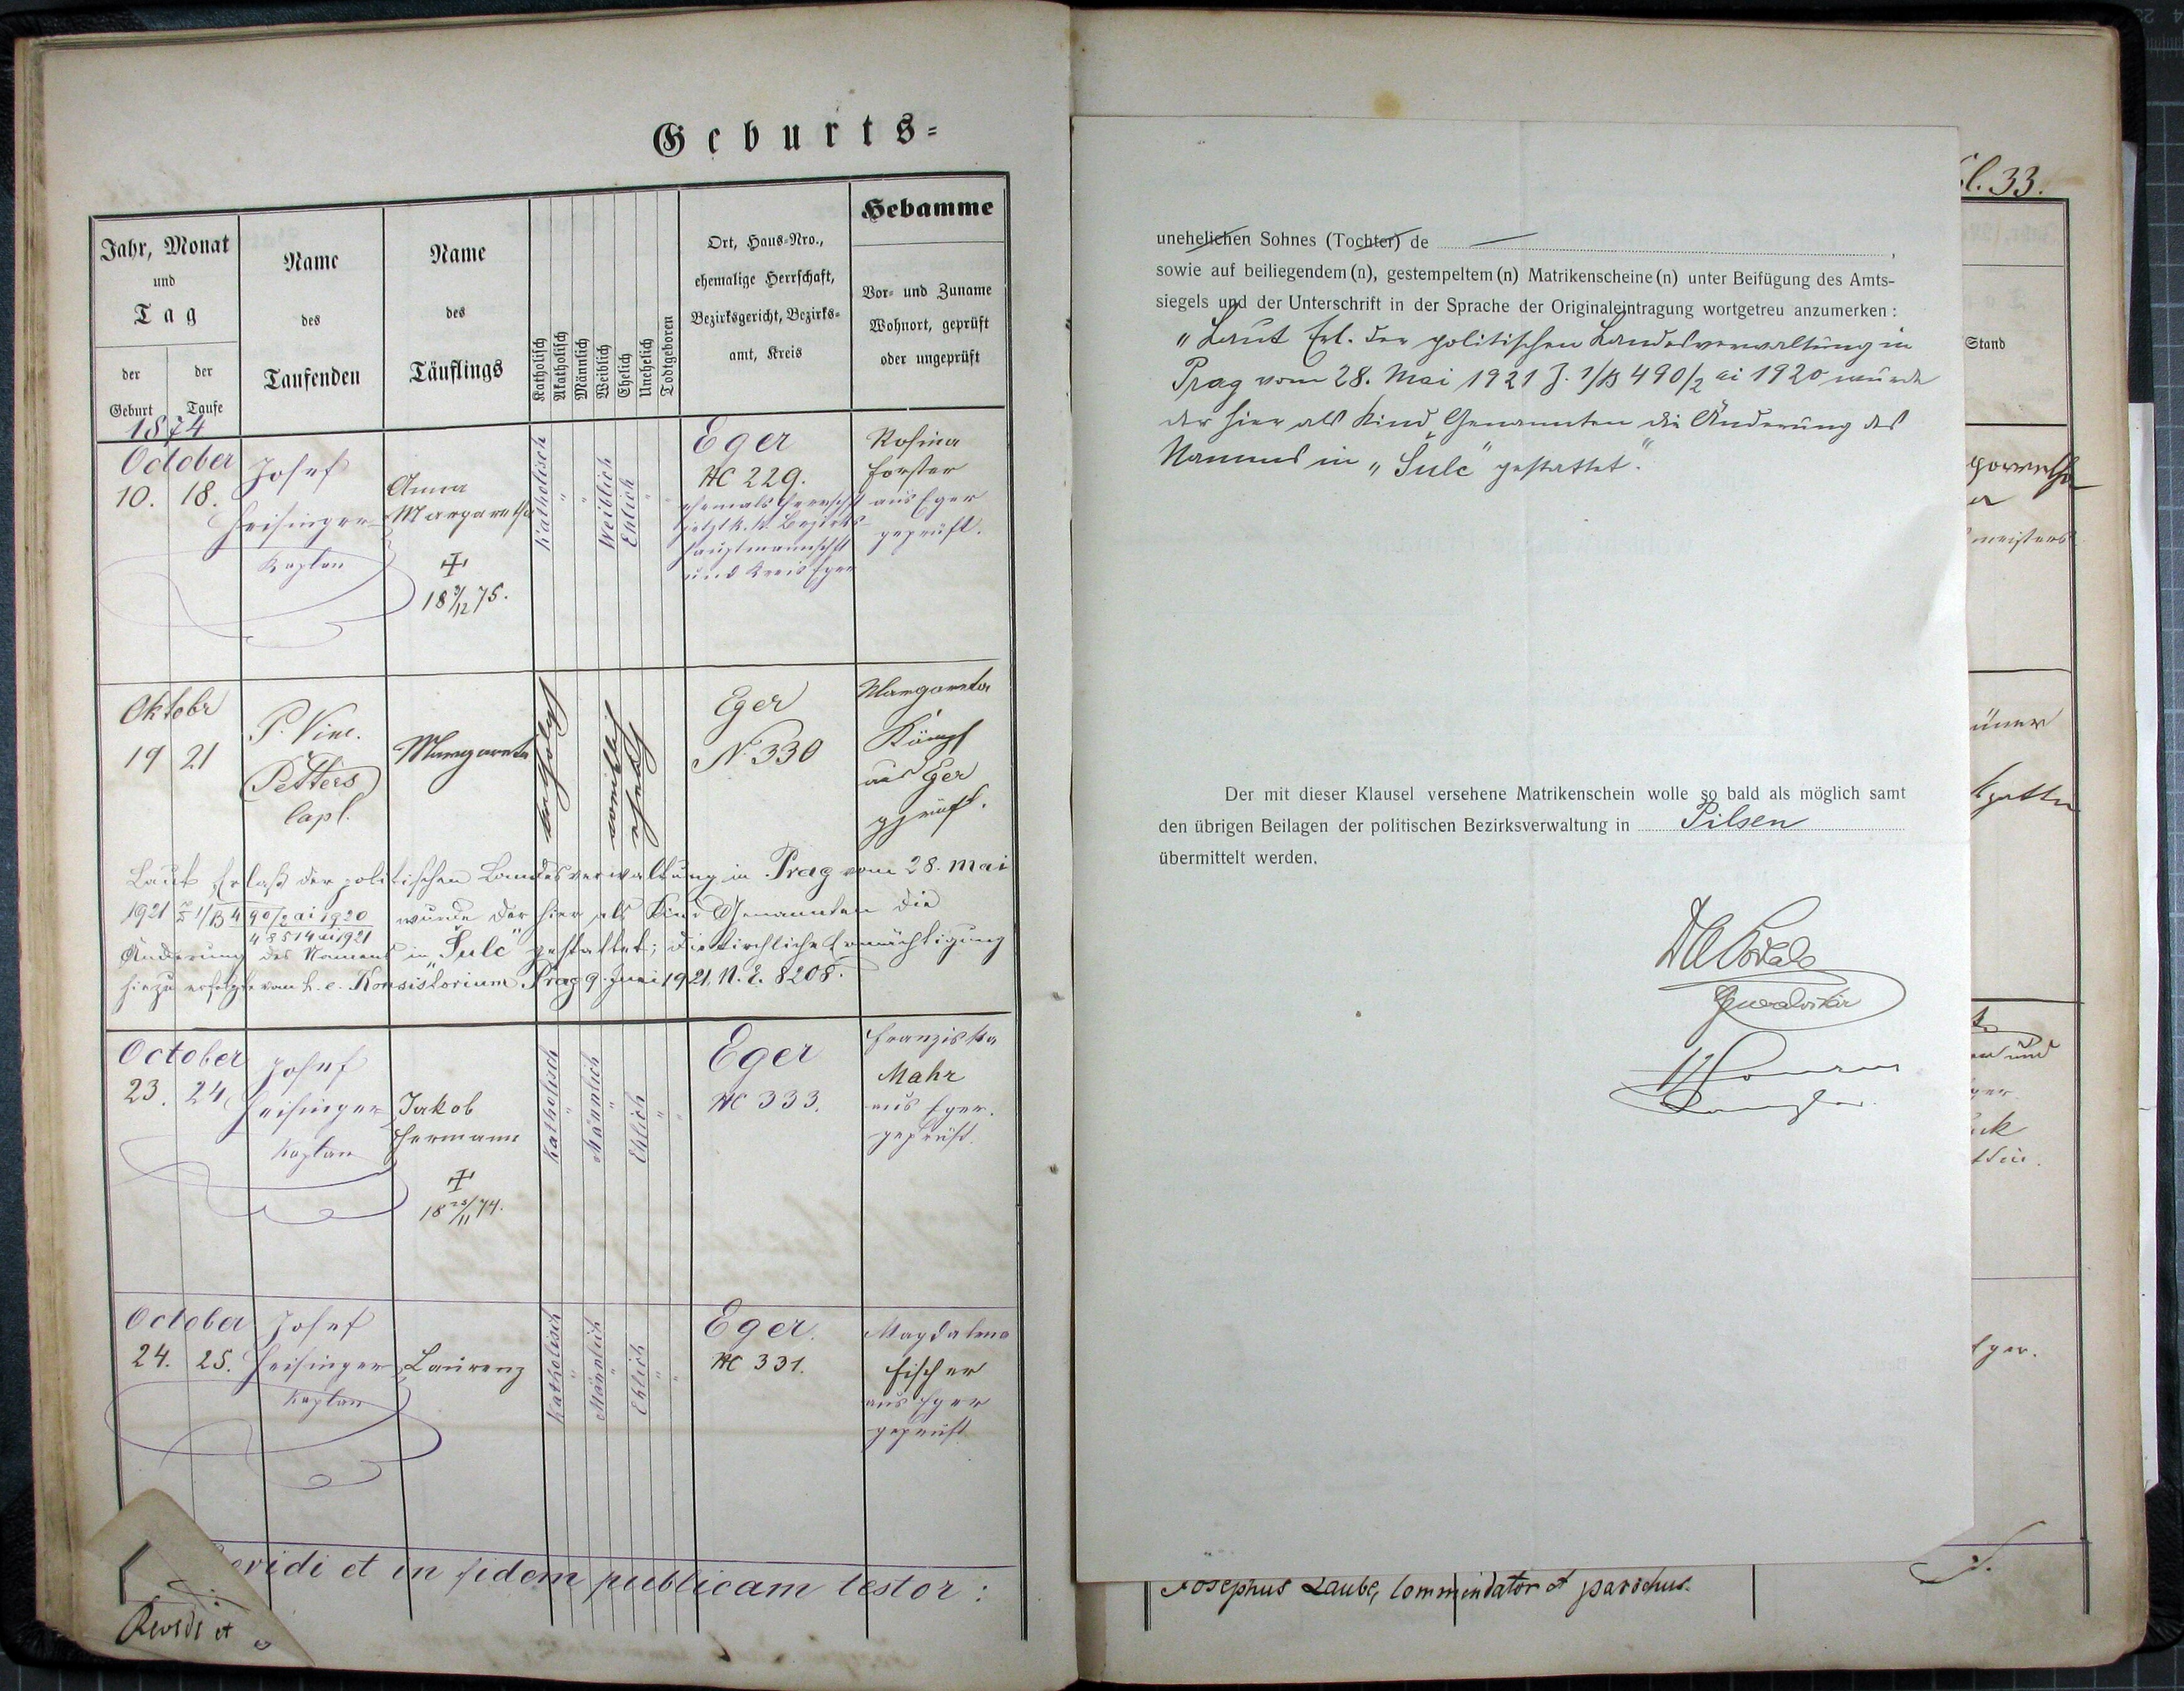 Geburts=
Jahr, Monat
und
Tag
der Geburt
der Taufe
Name
des
Taufenden
Name
des
Täuflings
Katholisch
Akatholisch
Männlich
Weiblich
Ehelich
Unehelich
Todtgeboren
Ort, Haus-Nro.,
ehemalige Herrschaft,
Bezirksgericht, Bezirks-
amt, Kreis
Hebamme
Vor- und Zuname
Wohnort, geprüft
oder ungeprüft
1874
October
10. 18.
Josef
Heisinger
Kaplan
Anna
Margaretha
18 9/12 75.
Katholisch
Weiblich
Ehlich
Eger
NC 229.
ehemals Herrschft
jetzt k. k. Bezirks-
hauptmannschft
und Kreis Eger
Rosina
Forster
aus Eger
geprüft.
Oktobr
19 21
P. Vinc.
Petters
Capl.
Margareta
katholisch
weiblich
ehelich
Eger
N. 330
Margareta
Kämpf
aus Eger
geprüft.
Laut Erlaß der politischen Landesverwaltung in Prag vom 28. Mai
1921 Z 1/B 490/2 ai 1920 wurde der hier als Kind Genannten die
48514 ai 1921
Änderung des Namens in „Šulc" gestattet; die kirchliche Ermächtigung
hiezu erfolgte vom f. e. Konsistorium Prag 9. Juni 1921, N. E. 8208.
October
23. 24.
Josef
Heisinger
Kaplan
Jakob
Hermann
18 23/11 74.
Katholisch
Männlich
Ehlich
Eger
NC 333.
Franziska
Mahr
aus Eger.
geprüft.
October
24. 25.
Josef
Heisinger
Kaplan
Laurenz
Katholisch
Männlich
Ehlich
Eger.
NC 331.
Magdalena
Fischer
aus Eger
geprüft
vidi et in fidem publicam testor:
Revidi et
unehelichen Sohnes (Tochter) de
sowie auf beiliegendem (n), gestempeltem (n) Matrikenscheine (n) unter Beifügung des Amts-
siegels und der Unterschrift in der Sprache der Originaleintragung wortgetreu anzumerken:
„Laut Erl. der politischen Landesverwaltung in
Prag vom 28. Mai 1921 Z. 1/B 490/2 ai 1920 wurde
der hier als Kind Genannten die Änderung des
Namens in „Šulc" gestattet".
Der mit dieser Klausel versehene Matrikenschein wolle so bald als möglich samt
den übrigen Beilagen der politischen Bezirksverwaltung in Pilsen
übermittelt werden.
Generalvikär
Josephus Laube, Commendator et parochus.
33.
Stand